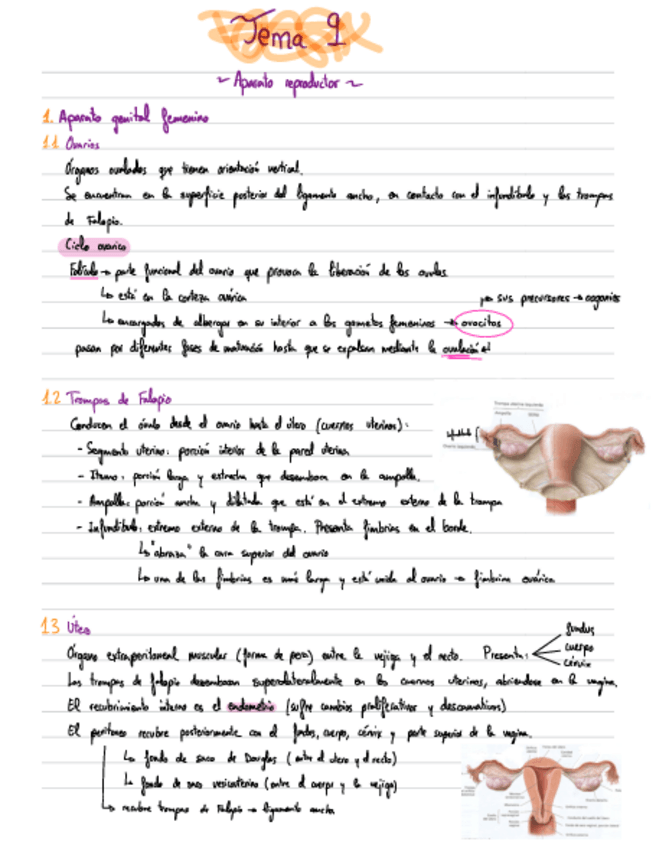 Tema 9
~ Aparato reproductor ~
1. Aparato genital femenino
1.1 Ovarios
Órganos ovalados que tienen orientación vertical.
Se encuentran en la superficie posterior del ligamento ancho, en contacto con el infundíbulo y las trompas
de Falopio.
Ciclo ovárico
Folículo → parte funcional del ovario que provoca la liberación de los óvulos
↳ está en la corteza ovárica
↳ encargados de albergar en su interior a los gametos femeninos → ovocitos
↱ sus precursores → oogonios
pasan por diferentes fases de maduración hasta que se expulsan mediante la ovulación
1.2 Trompas de Falopio
Conducen el óvulo desde el ovario hasta el útero (cuernos uterinos):
- Segmento uterino: porción interior de la pared uterina
- Itsmo: porción larga y estrecha que desemboca en la ampolla.
- Ampolla: porción ancha y dilatada que está en el extremo externo de la trompa
- Infundíbulo: extremo externo de la trompa. Presenta fimbrias en el borde.
↳ "abraza" la cara superior del ovario
↳ una de las fimbrias es más larga y está unida al ovario → fimbria ovárica
Infundíbulo
Trompa uterina izquierda
Ampolla
Istmo
Ovario izquierdo
1.3 Útero
Órgano extraperitoneal muscular (forma de pera) entre la vejiga y el recto. Presenta:
fundus
cuerpo
cérvix
Las trompas de falopio desembocan superolateralmente en los cuernos uterinos, abriéndose en la vagina.
El recubrimiento interno es el endometrio (sufre cambios proliferativos y descamativos)
El peritoneo recubre posteriormente con el fondo, cuerpo, cérvix y parte superior de la vagina.
↳ fondo de saco de Douglas (entre el útero y el recto)
↳ fondo de saco vesicouterino (entre el cuerpo y la vejiga)
↳ recubre trompas de Falopio → ligamento ancho